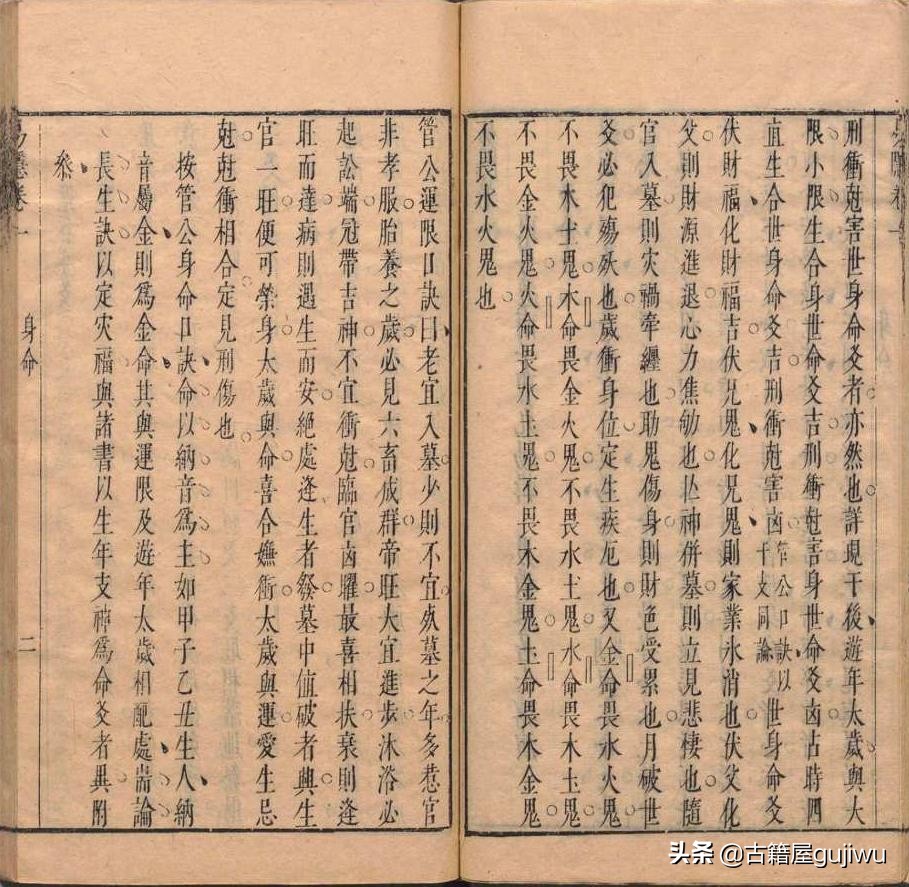 刑衝尅害世身命爻者亦然也詳現干後遊年太歲與大
限小限生合身世命爻吉刑衝尅害身世命爻凶古時四
直生合世身命爻吉刑衝尅害凶管公口訣以干支同論世身命爻
伏財福化財福吉伏兄鬼化兄鬼則家業氷消也伏父化
父則財源進退心力焦劬也亾神併墓則立見悲棲也隨
官入墓則灾禍牽纏也助鬼傷身則財色受累也月破世
爻必犯殤殀也歲衝身位定生疾厄也又金命畏水火鬼
不畏木土鬼木命畏金火鬼不畏水土鬼水命畏木土鬼
不畏金火鬼火命畏水土鬼不畏木金鬼土命畏木金鬼
不畏水火鬼也
管公運限口訣曰老宜入墓少則不宜殀墓之年多惹官
非孝服胎養之歲必見六畜成群帝旺大宜進步沐浴必
起訟端冠帶吉神不宜衝尅臨官凶曜最喜相扶衰則逢
旺而達病則遇生而安絕處逢生者發墓中値破者興生
官一旺便可榮身太歲與命喜合嫌衝大歲與運愛生忌
尅尅衝相合定見刑傷也
按管公身命口訣命以納音爲主如甲子乙丑生人納
音屬金則爲金命其與運限及遊年太歲相配處耑論
長生訣以定灾福與諸書以生年支神爲命爻者異附
叅
易隱卷一 身命 二
头条 @古籍屋gujiwu